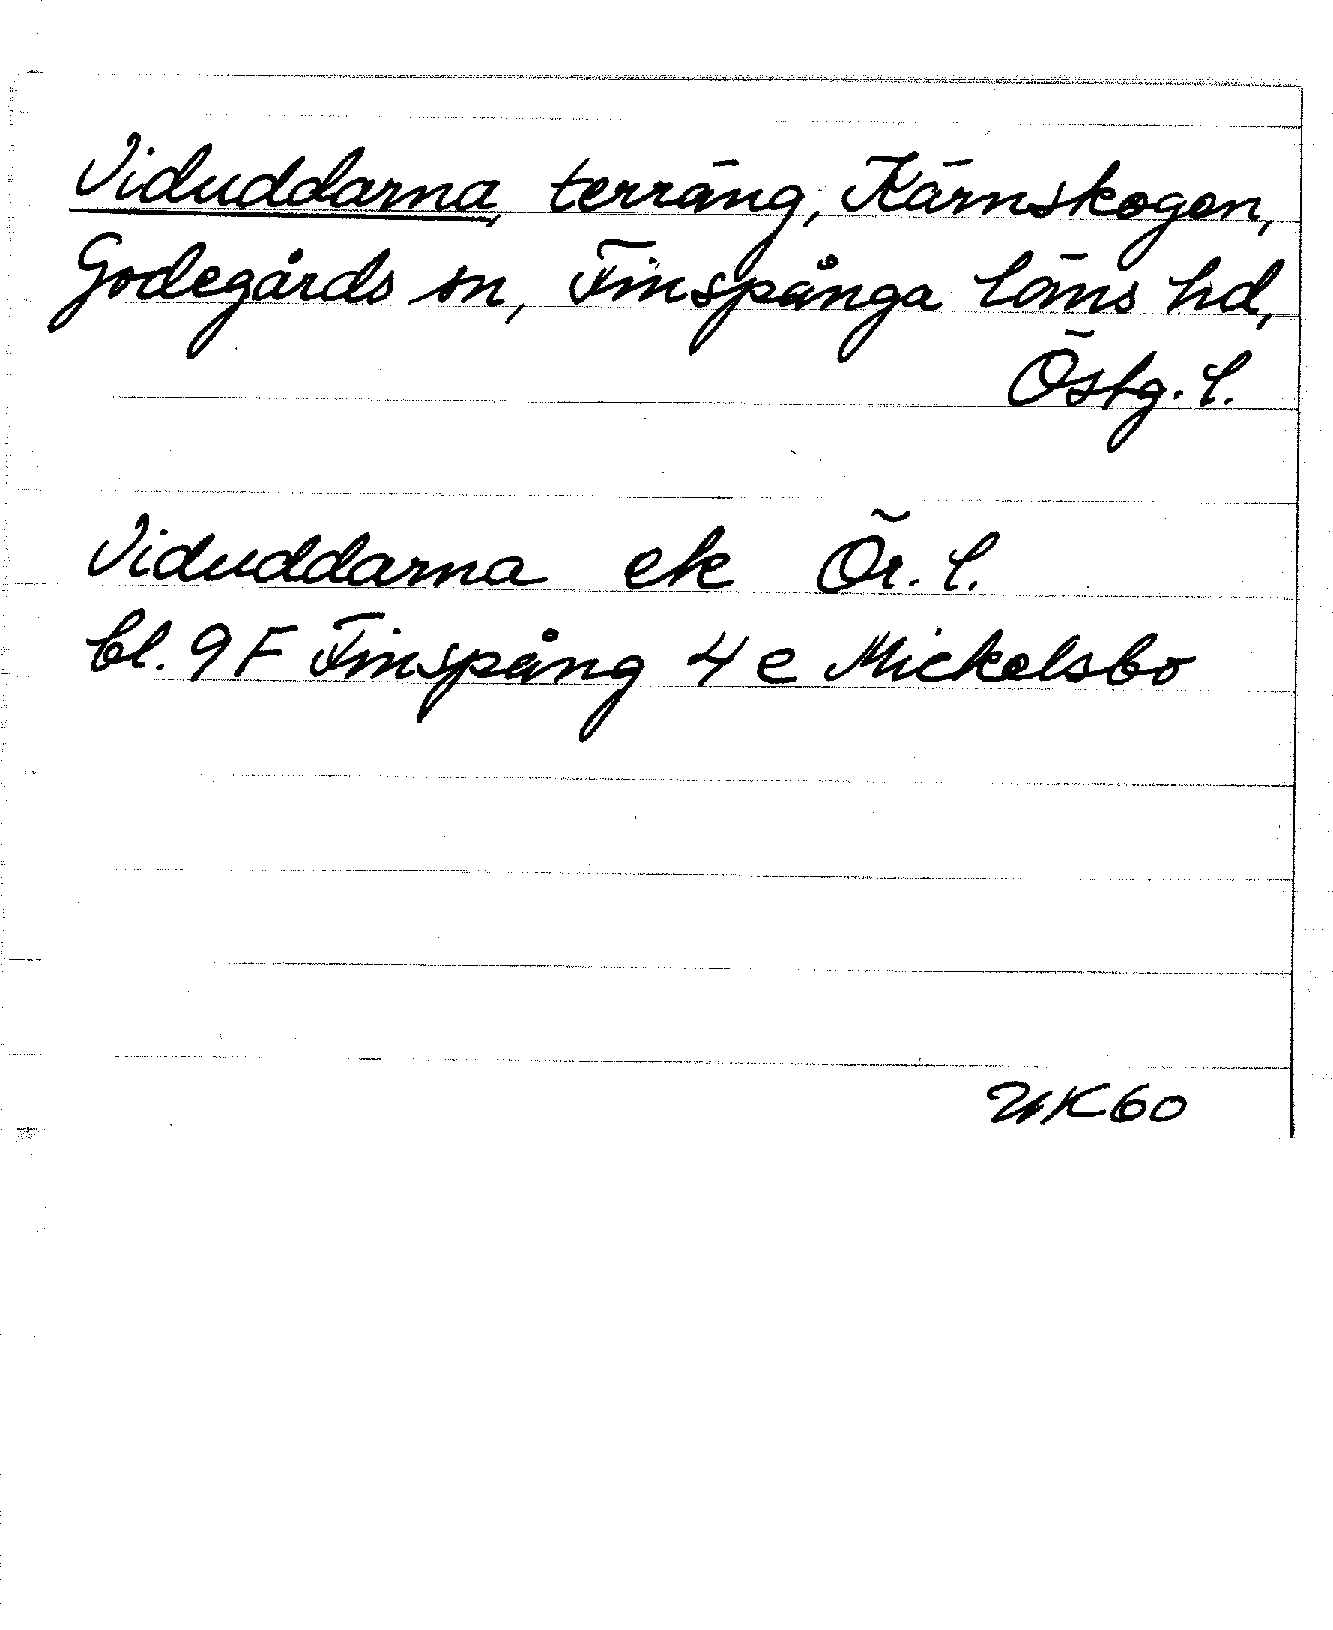 Viduddarna, terräng, Kärnskogen,
Godegårds sn, Finspånga läns hd,
Östg. l.
Viduddarna ek Ör. l.
bl. 9 F Finspång 4 e Mickelsbo
UK60